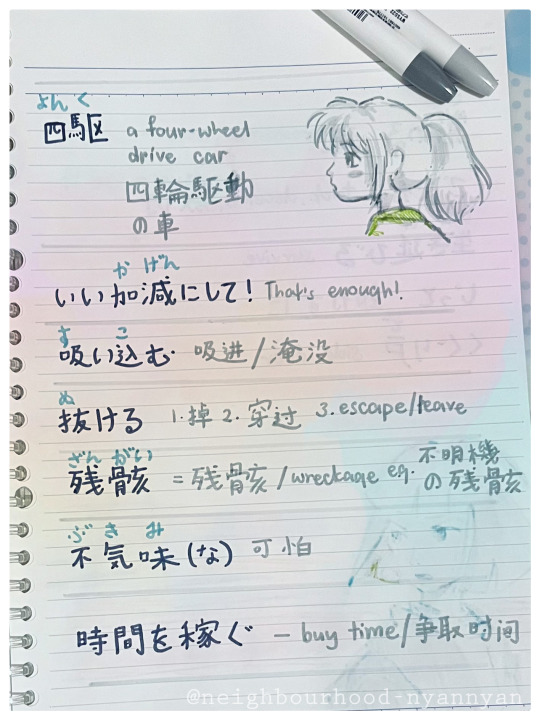 よんく
四駆 a four-wheel
drive car
四輪駆動
の車
かげん
いい加減にして! That's enough!
すこ
吸い込む 吸进/淹没
ぬ
抜ける 1.掉 2.穿过 3.escape/leave
ざんがい
残骸 =残骸/wreckage eg. 不明機
の残骸
ぶきみ
不気味(な) 可怕
時間を稼ぐ — buy time/争取时间
@neighbourhood-nyannyan